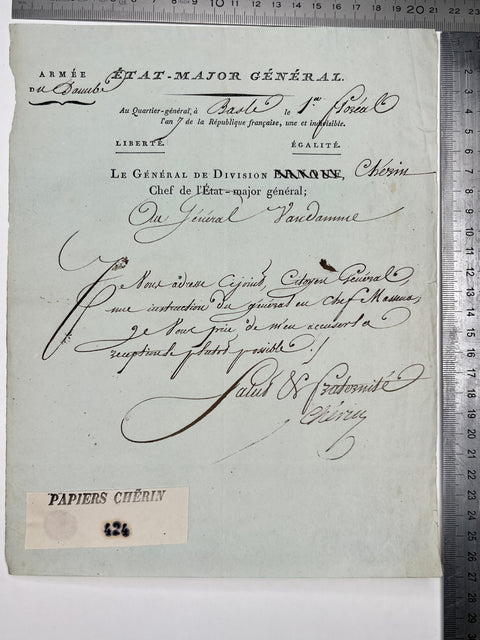 ARMÉE
du Danube
ÉTAT-MAJOR GÉNÉRAL.
Au Quartier-général, à Basle le 1er floréal
l'an 7 de la République française, une et indivisible.
LIBERTÉ. ÉGALITÉ.
LE GÉNÉRAL DE DIVISION Chérin
Chef de l'État-major général;
Au Général Vandamme
Je Vous adresse Cijoint, Citoyen Général,
une instruction du général en chef Massena,
Je Vous prie de m'en accuser la
reception le plutot possible ./
Salut & fraternité
Chérin
PAPIERS CHÉRIN
424